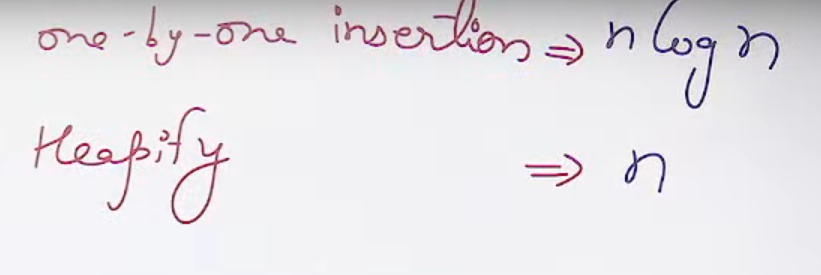 one-by-one insertion ⇒ n log n
Heapify ⇒ n